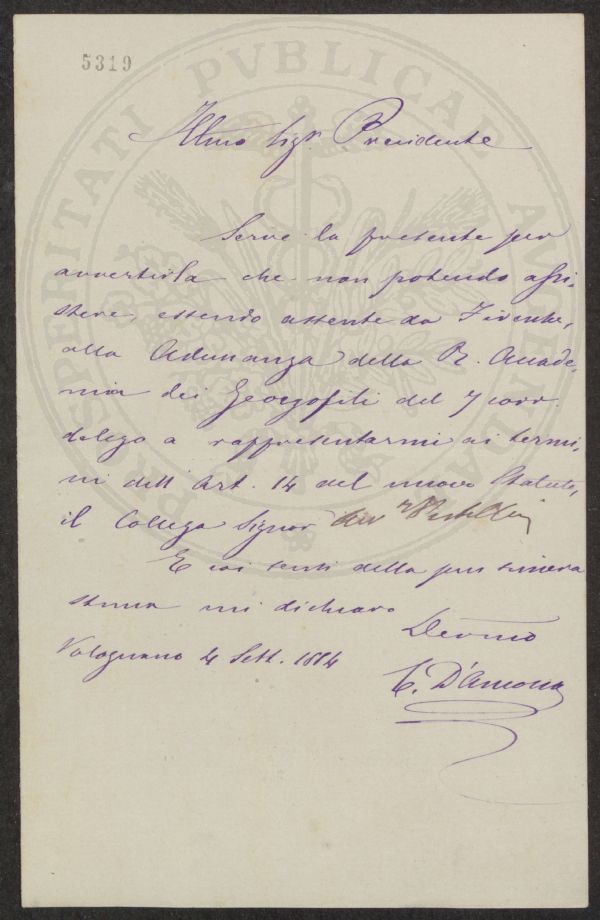 5319
PROSPERITATI PVBLICAE AVGENDAE
Illmo Sigr. Presidente
Serve la presente per
avvertirla che non potendo assi-
stere, essendo assente da Firenze,
alla Adunanza della R. Accade-
mia dei Georgofili del 7 corr.
delego a rappresentarmi ai termi-
ni dell' Art. 14 del nuovo Statuto,
il Collega Signor
E coi sensi della più sincera
stima mi dichiaro
Devmo
Volognano 4 Sett. 1884
C. D'Ancona